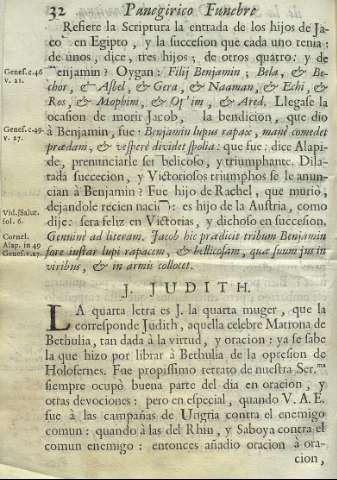 32 Panegirico Funebre
Refiere la Scriptura la entrada de los hijos de Ja-
co en Egipto, y la succesion que cada uno tenia:
de unos, dice, tres hijos; de otros quatro: y de
Genes. c. 46
v. 21.
enjamin? Oygan: Filij Benjamin; Bela, & Be-
chor, & Asbel, & Gera, & Naaman, & Echi, &
Ros, & Mophim, & Ophim, & Ared. Llegase la
ocasion de morir Jacob, la bendicion, que dio
Genes. c. 49.
v. 27.
à Benjamin, fue: Benjamin lupus rapax, manè comedet
prædam, & vesperè dividet spolia: que fue: dice Alapi-
de, prenunciarle ser belicoso, y triumphante. Dila-
tada succecion, y Victoriosos triumphos se le anun-
cian à Benjamin? Fue hijo de Rachel, que murio,
dejandole recien naci: es hijo de la Austria, como
Vid. Salut.
fol. 6.
dije: sera feliz en Victorias, y dichoso en succesion.
Cornel.
Alap. in 49
Genes. v. 27.
Genuinè ad literam. Jacob hic prædicit tribum Benjamin
fore instar lupi rapacem, & bellicosam, quæ suum jus in
viribus, & in armis collocet.
J. JUDITH.
LA quarta letra es J. la quarta muger, que la
corresponde Judith, aquella celebre Matrona de
Bethulia, tan dada à la virtud, y oracion: ya se sabe
la que hizo por librar à Bethulia de la opresion de
Holofernes. Fue propissimo retrato de nuestra Ser.ma
siempre ocupò buena parte del dia en oracion, y
otras devociones: pero en especial, quando V. A. E.
fue à las campañas de Ungria contra el enemigo
comun: quando à las del Rhin, y Saboya contra el
comun enemigo: entonces añadio oracion à ora-
cion,